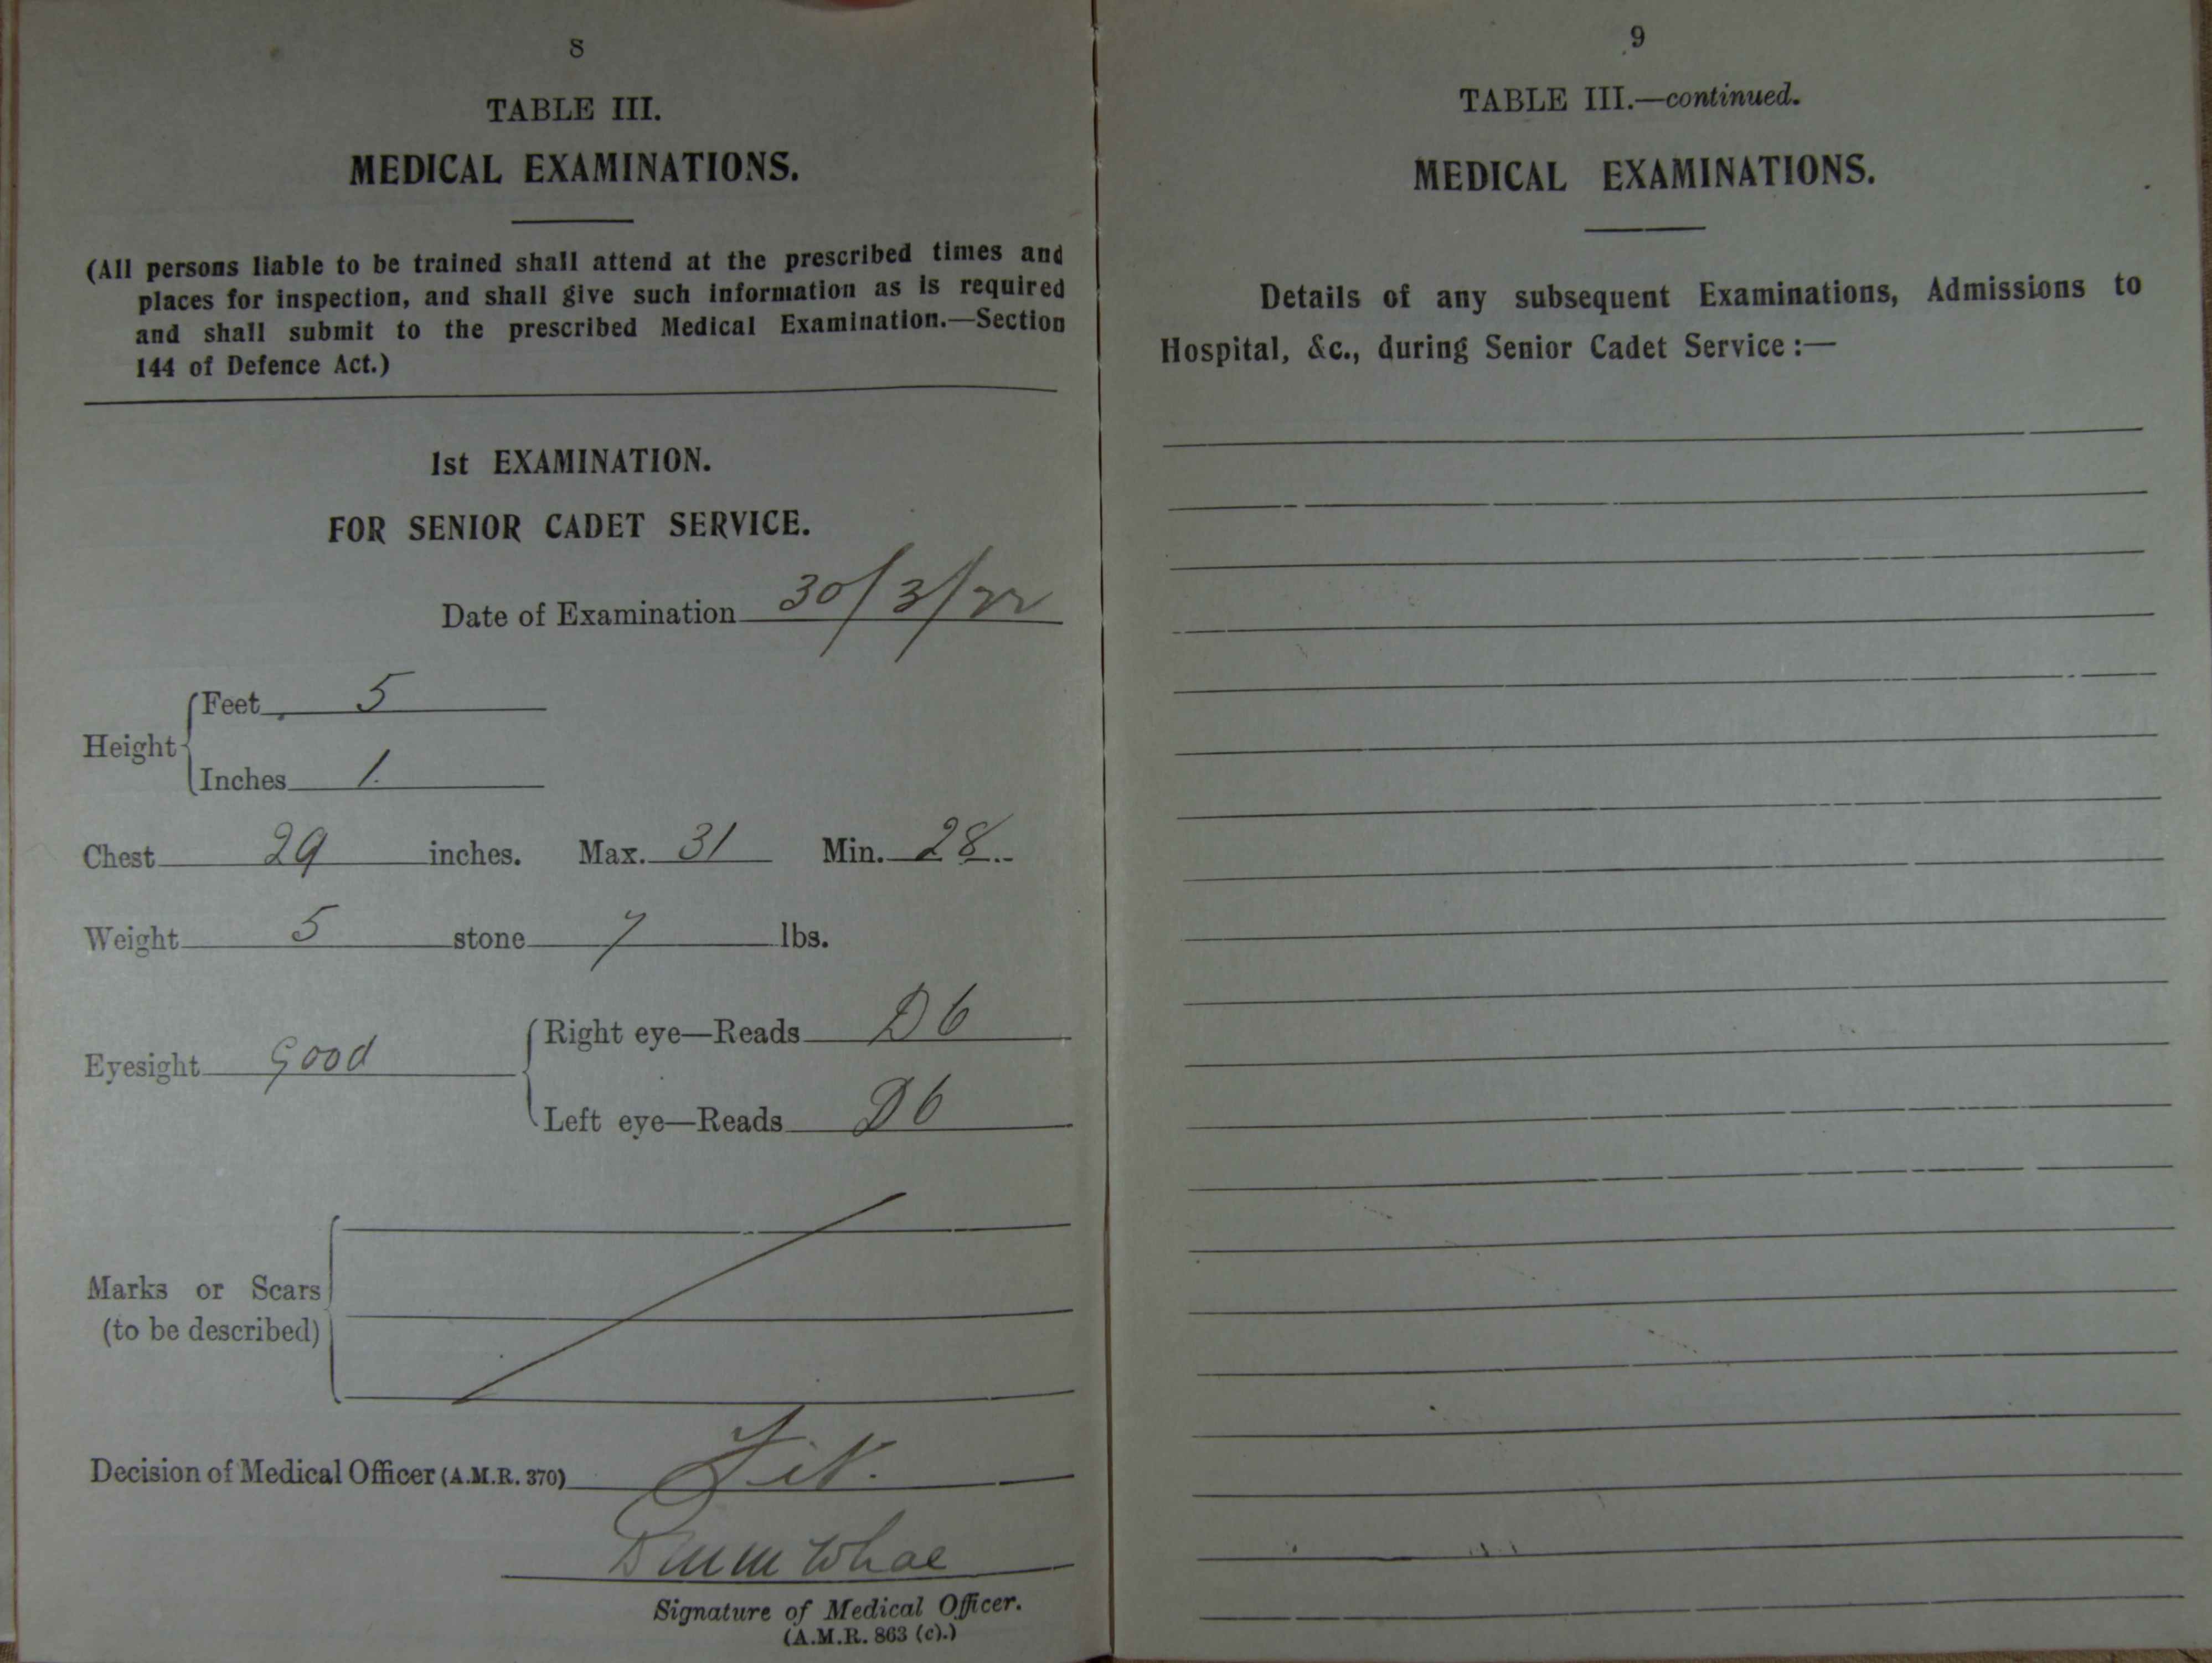 8
TABLE III.
MEDICAL EXAMINATIONS.
(All persons liable to be trained shall attend at the prescribed times and
places for inspection, and shall give such information as is required
and shall submit to the prescribed Medical Examination.—Section
144 of Defence Act.)
1st EXAMINATION.
FOR SENIOR CADET SERVICE.
Date of Examination 30/3/22
Height
Feet 5
Inches 1.
Chest 29 inches. Max. 31 Min. 28
Weight 5 stone 7 lbs.
Eyesight Good
Right eye—Reads D6
Left eye—Reads D6
Marks or Scars
(to be described)
Decision of Medical Officer (A.M.R. 370) Fit.
Signature of Medical Officer.
(A.M.R. 863 (c).)
9
TABLE III.—continued.
MEDICAL EXAMINATIONS.
Details of any subsequent Examinations, Admissions to
Hospital, &c., during Senior Cadet Service :—